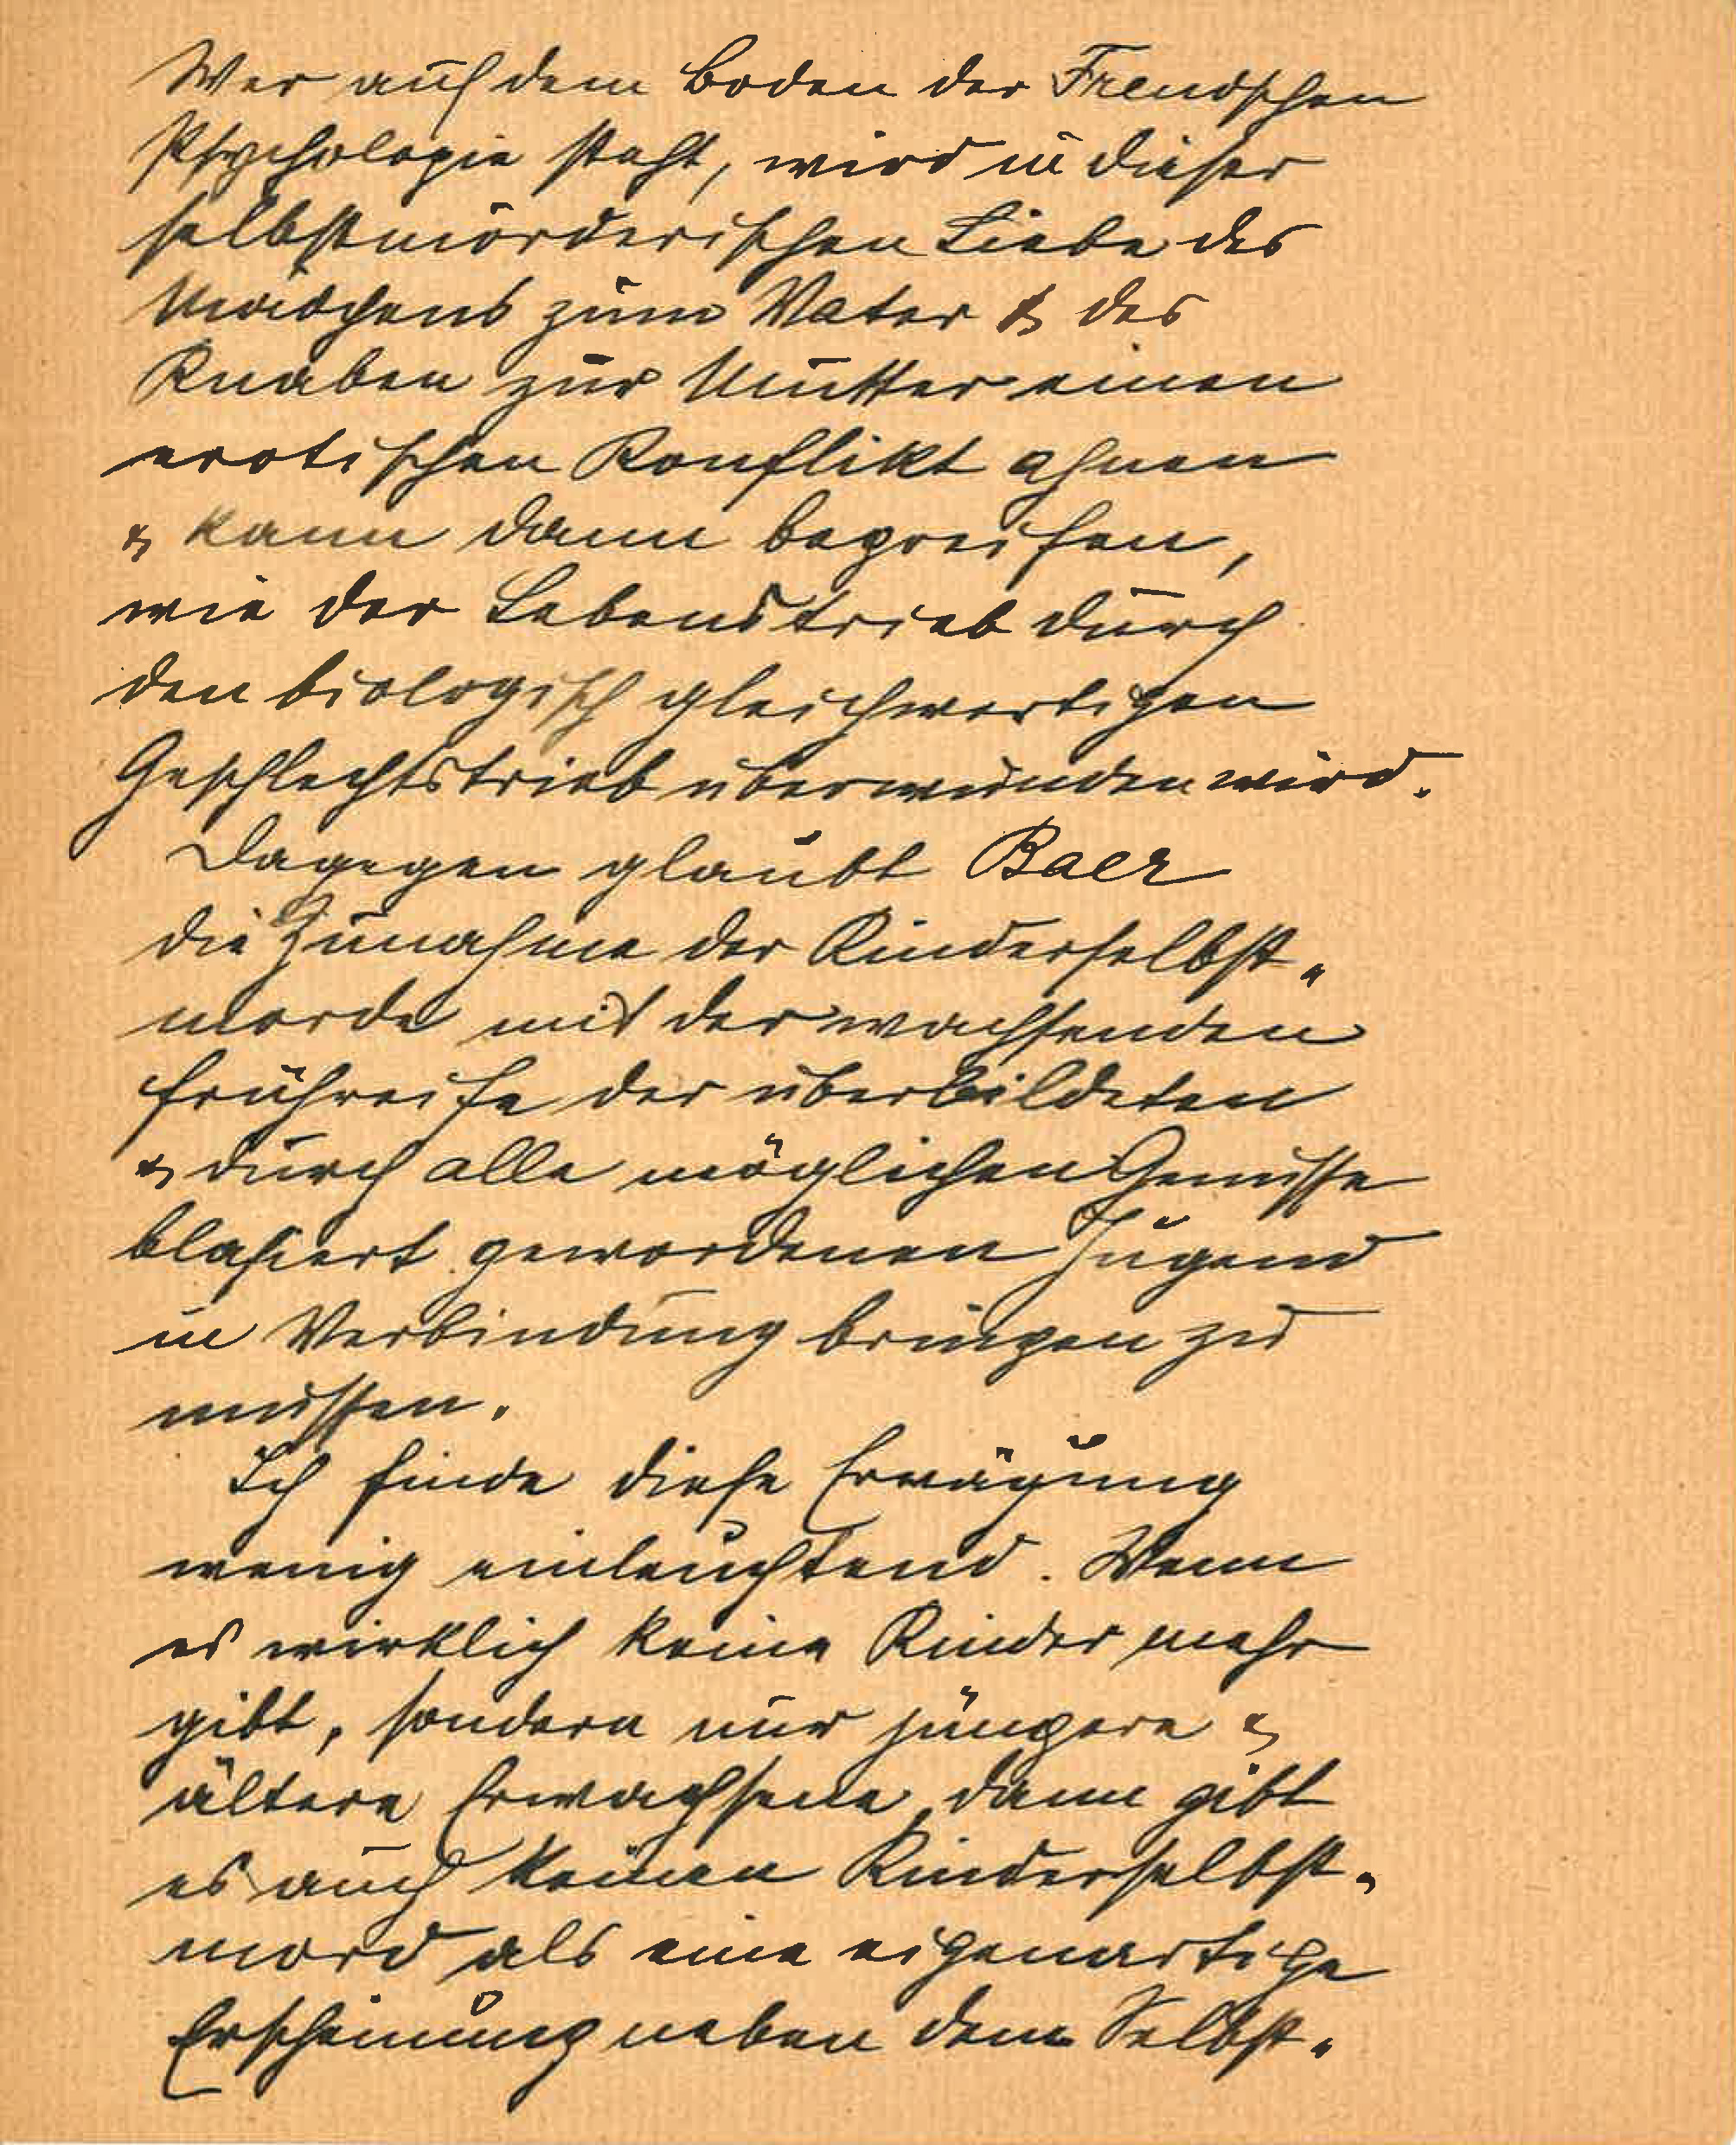 Wer auf dem Boden der Freudschen
Psychologie steht, wird in dieser
selbstmörderischen Liebe des
Mädchens zum Vater & des
Knaben zur Mutter einen
erotischen Konflikt ahnen
& kann dann begreifen,
wie der Lebenstrieb durch
den biologisch gleichwertigen
Geschlechtstrieb überwunden wird.
Dagegen glaubt Baer
die Zunahme der Kinderselbst-
morde mit der wachsenden
Frühreife der überbildeten
& durch alle möglichen Genüsse
blasiert gewordenen Jugend
in Verbindung bringen zu
müssen.
Ich finde diese Erwägung
wenig einleuchtend. Wenn
es wirklich keine Kinder mehr
gibt, sondern nur jüngere &
ältere Erwachsene, dann gibt
es auch keinen Kinderselbst-
mord als eine eigenartige
Erscheinung neben dem Selbst-